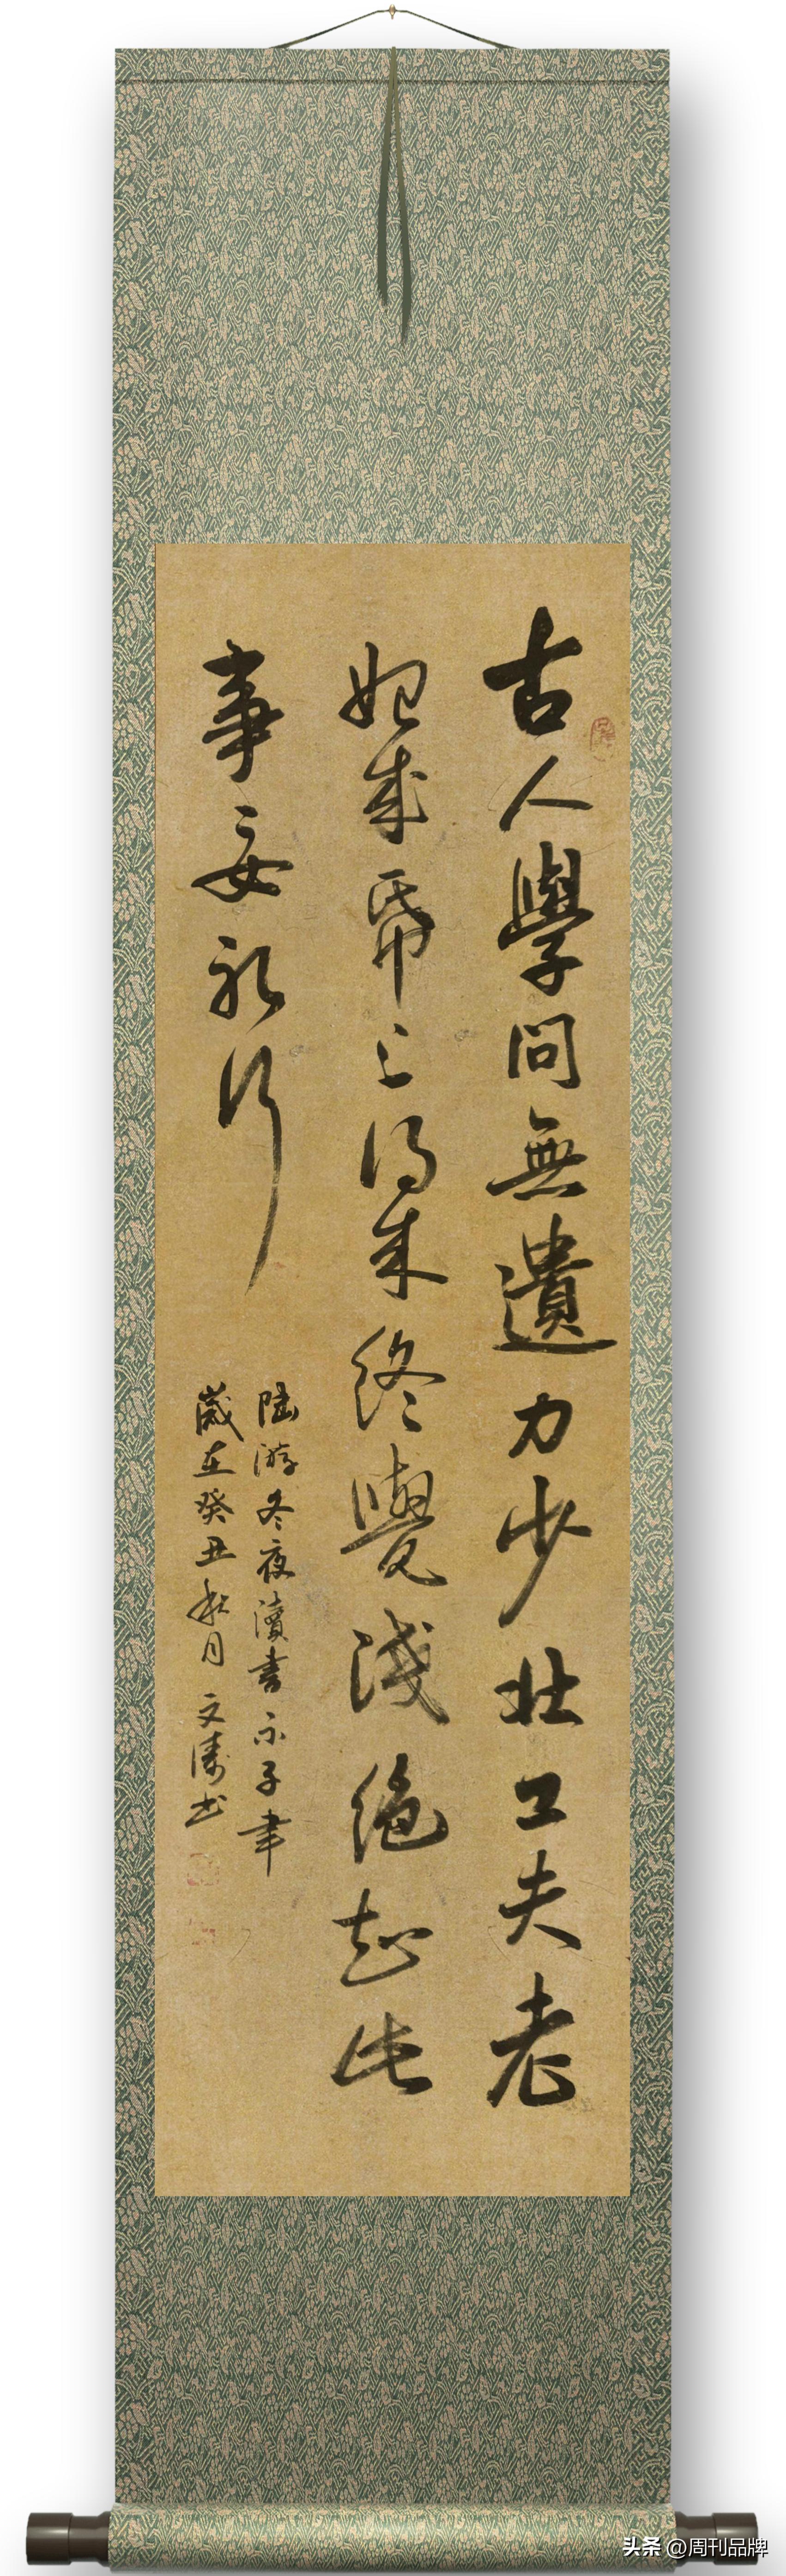 古人學問無遺力少壯工夫老
始成帋上得来終覺淺絕知此
事要躬行
陸游冬夜讀書示子聿
歲在癸丑秋月文濤书
头条 @周刊品牌